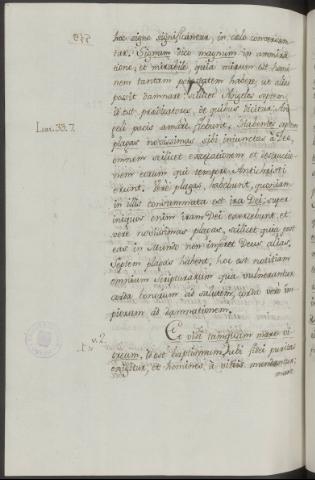 hoc signo significantur, in celo conversan-
tur. Signum dico magnum in admira-
tione, et mirabile, quia mirum est homi-
nem tantam potestatem habere, ut alios
possit damnare. scilicet Angelos septem,
id est prædicatores, de quibus dicitur An-
geli pacis amare flebunt. Habentes septem
plagas novissimas sibi injunctas a Deo,
omnem scilicet
nem eorum qui tempore Antichristi
erunt. Vere plagas, habebunt, quoniam
in illis consummata est ira Dei; super
iniquos enim iram Dei exercebunt. et
vere novissimas plagas, scilicet quia post
eas in Mundo non inferet Deus alias.
Septem plagas habent, hoc est notitiam
omnium scripturarum qua vulnerantur
corda bonorum ad salutem, corda vero im-
piorum ad damnationem.
Et vidi tamquam mare vi-
treum, id est baptismum, ubi fidei puritas
exigitur, et homines a vitiis mundantur;
Isai. 33. 7.
v. 2.